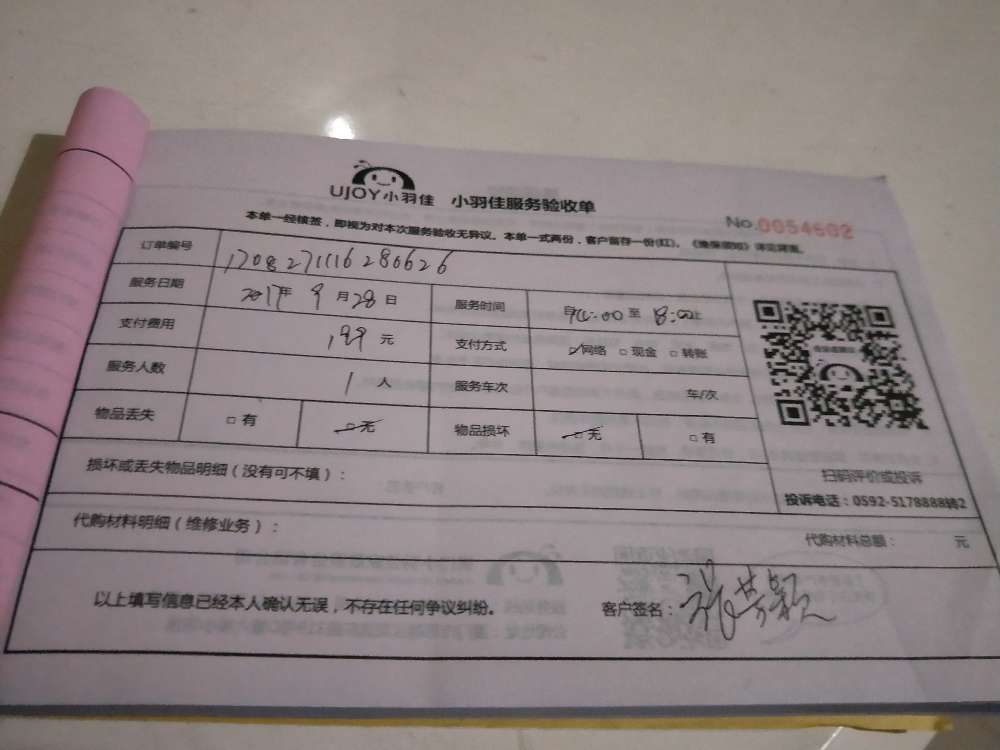 UJOY小羽佳 小羽佳服务验收单
No.0054602
本单一经核签，即视为对本次服务验收无异议。本单一式两份，客户留存一份(红)。
订单编号 1708271116280626
服务日期 2017年 9月28日 服务时间 自 14:00 至 18:00止
支付费用 199 元 支付方式 ☑网络 □现金 □转账
服务人数 1 人 服务车次 车/次
物品丢失 □有 ☑无 物品损坏 ☑无 □有
扫码评价或投诉
投诉电话：0592-5178888转2
损坏或丢失物品明细（没有可不填）：
代购材料明细（维修业务）： 代购材料总额： 元
以上填写信息已经本人确认无误，不存在任何争议纠纷。 客户签名：